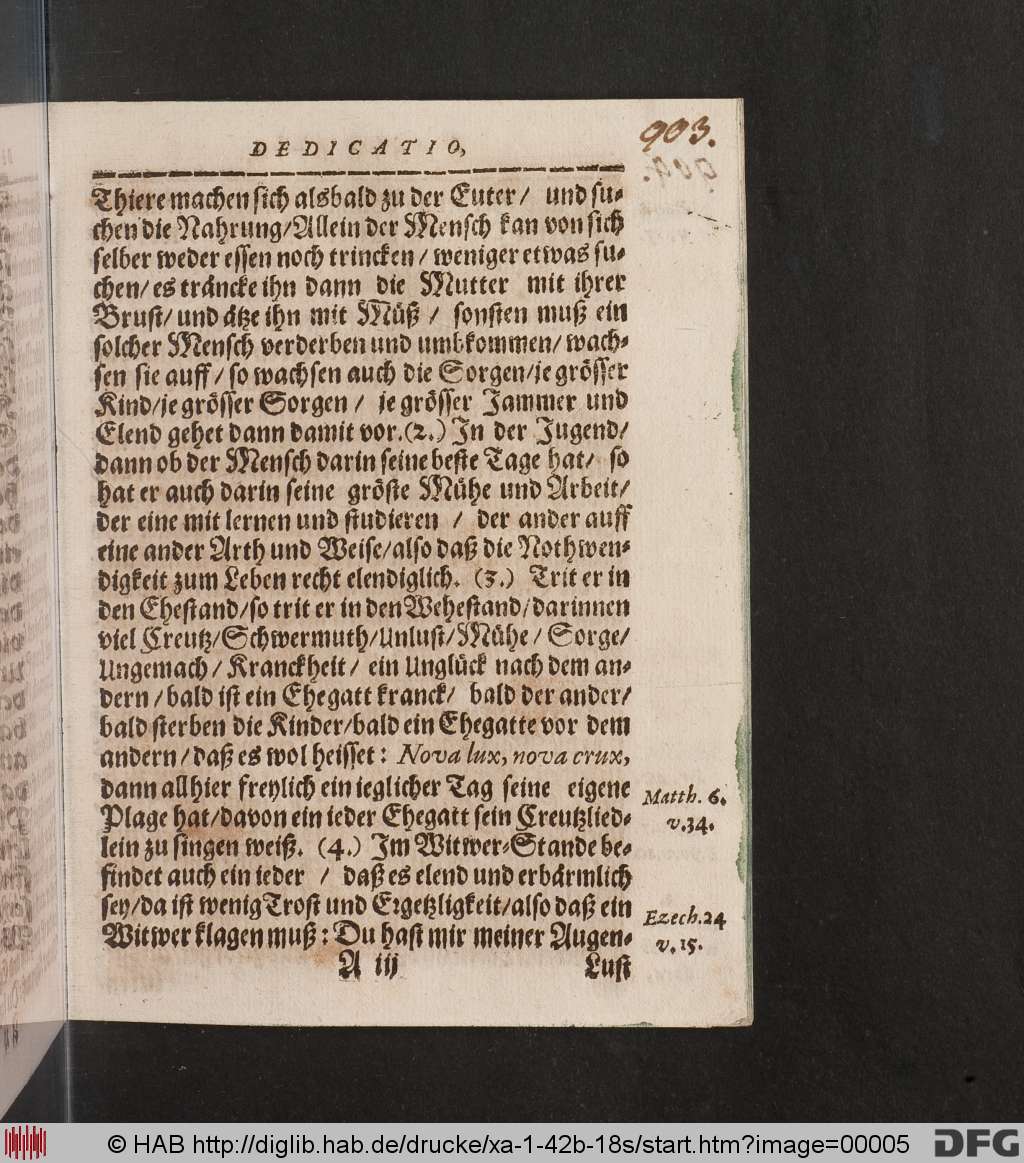 903.
DEDICATIO,
Thiere machen sich alsbald zu der Euter/ und su-
chen die Nahrung/Allein der Mensch kan von sich
selber weder essen noch trincken/ weniger etwas su-
chen/ es träncke ihn dann die Mutter mit ihrer
Brust/ und ätze ihn mit Müß/ sonsten muß ein
solcher Mensch verderben und umbkommen/ wach-
sen sie auff/ so wachsen auch die Sorgen/je grösser
Kind/je grösser Sorgen/ je grösser Jammer und
Elend gehet dann damit vor.(2.) In der Jugend/
dann ob der Mensch darin seine beste Tage hat/ so
hat er auch darin seine gröste Mühe und Arbeit/
der eine mit lernen und studieren / der ander auff
eine ander Arth und Weise/also daß die Nothwen-
digkeit zum Leben recht elendiglich. (3.) Trit er in
den Ehestand/so trit er in den Wehestand/darinnen
viel Creutz/Schwermuth/Unlust/Mühe/ Sorge/
Ungemach/ Kranckheit/ ein Unglück nach dem an-
dern/ bald ist ein Ehegatt kranck/ bald der ander/
bald sterben die Kinder/bald ein Ehegatte vor dem
andern/ daß es wol heisset: Nova lux, nova crux,
dann allhier freylich ein ieglicher Tag seine eigene
Plage hat/davon ein ieder Ehegatt sein Creutzlied-
lein zu singen weiß. (4.) Im Witwer-Stande be-
findet auch ein ieder / daß es elend und erbärmlich
sey/da ist wenig Trost und Ergetzligkeit/also daß ein
Witwer klagen muß: Du hast mir meiner Augen-
A iij Lust
Matth. 6.
v.34.
Ezech.24
v.15.
© HAB http://diglib.hab.de/drucke/xa-1-42b-18s/start.htm?image=00005
DFG